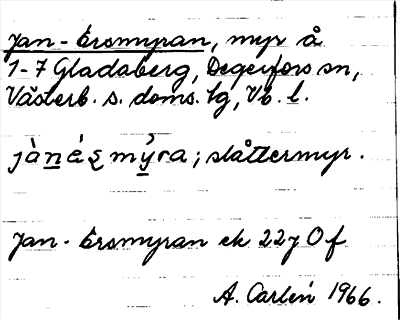 Jan-Ersmyran, myr å
1-7 Gladaberg, Degerfors sn,
Västerb. s. doms. lg, Vb. l.
jànés mýra; slåttermyr.
Jan-Ersmyran ek 22j Of
A. Carlén 1966.